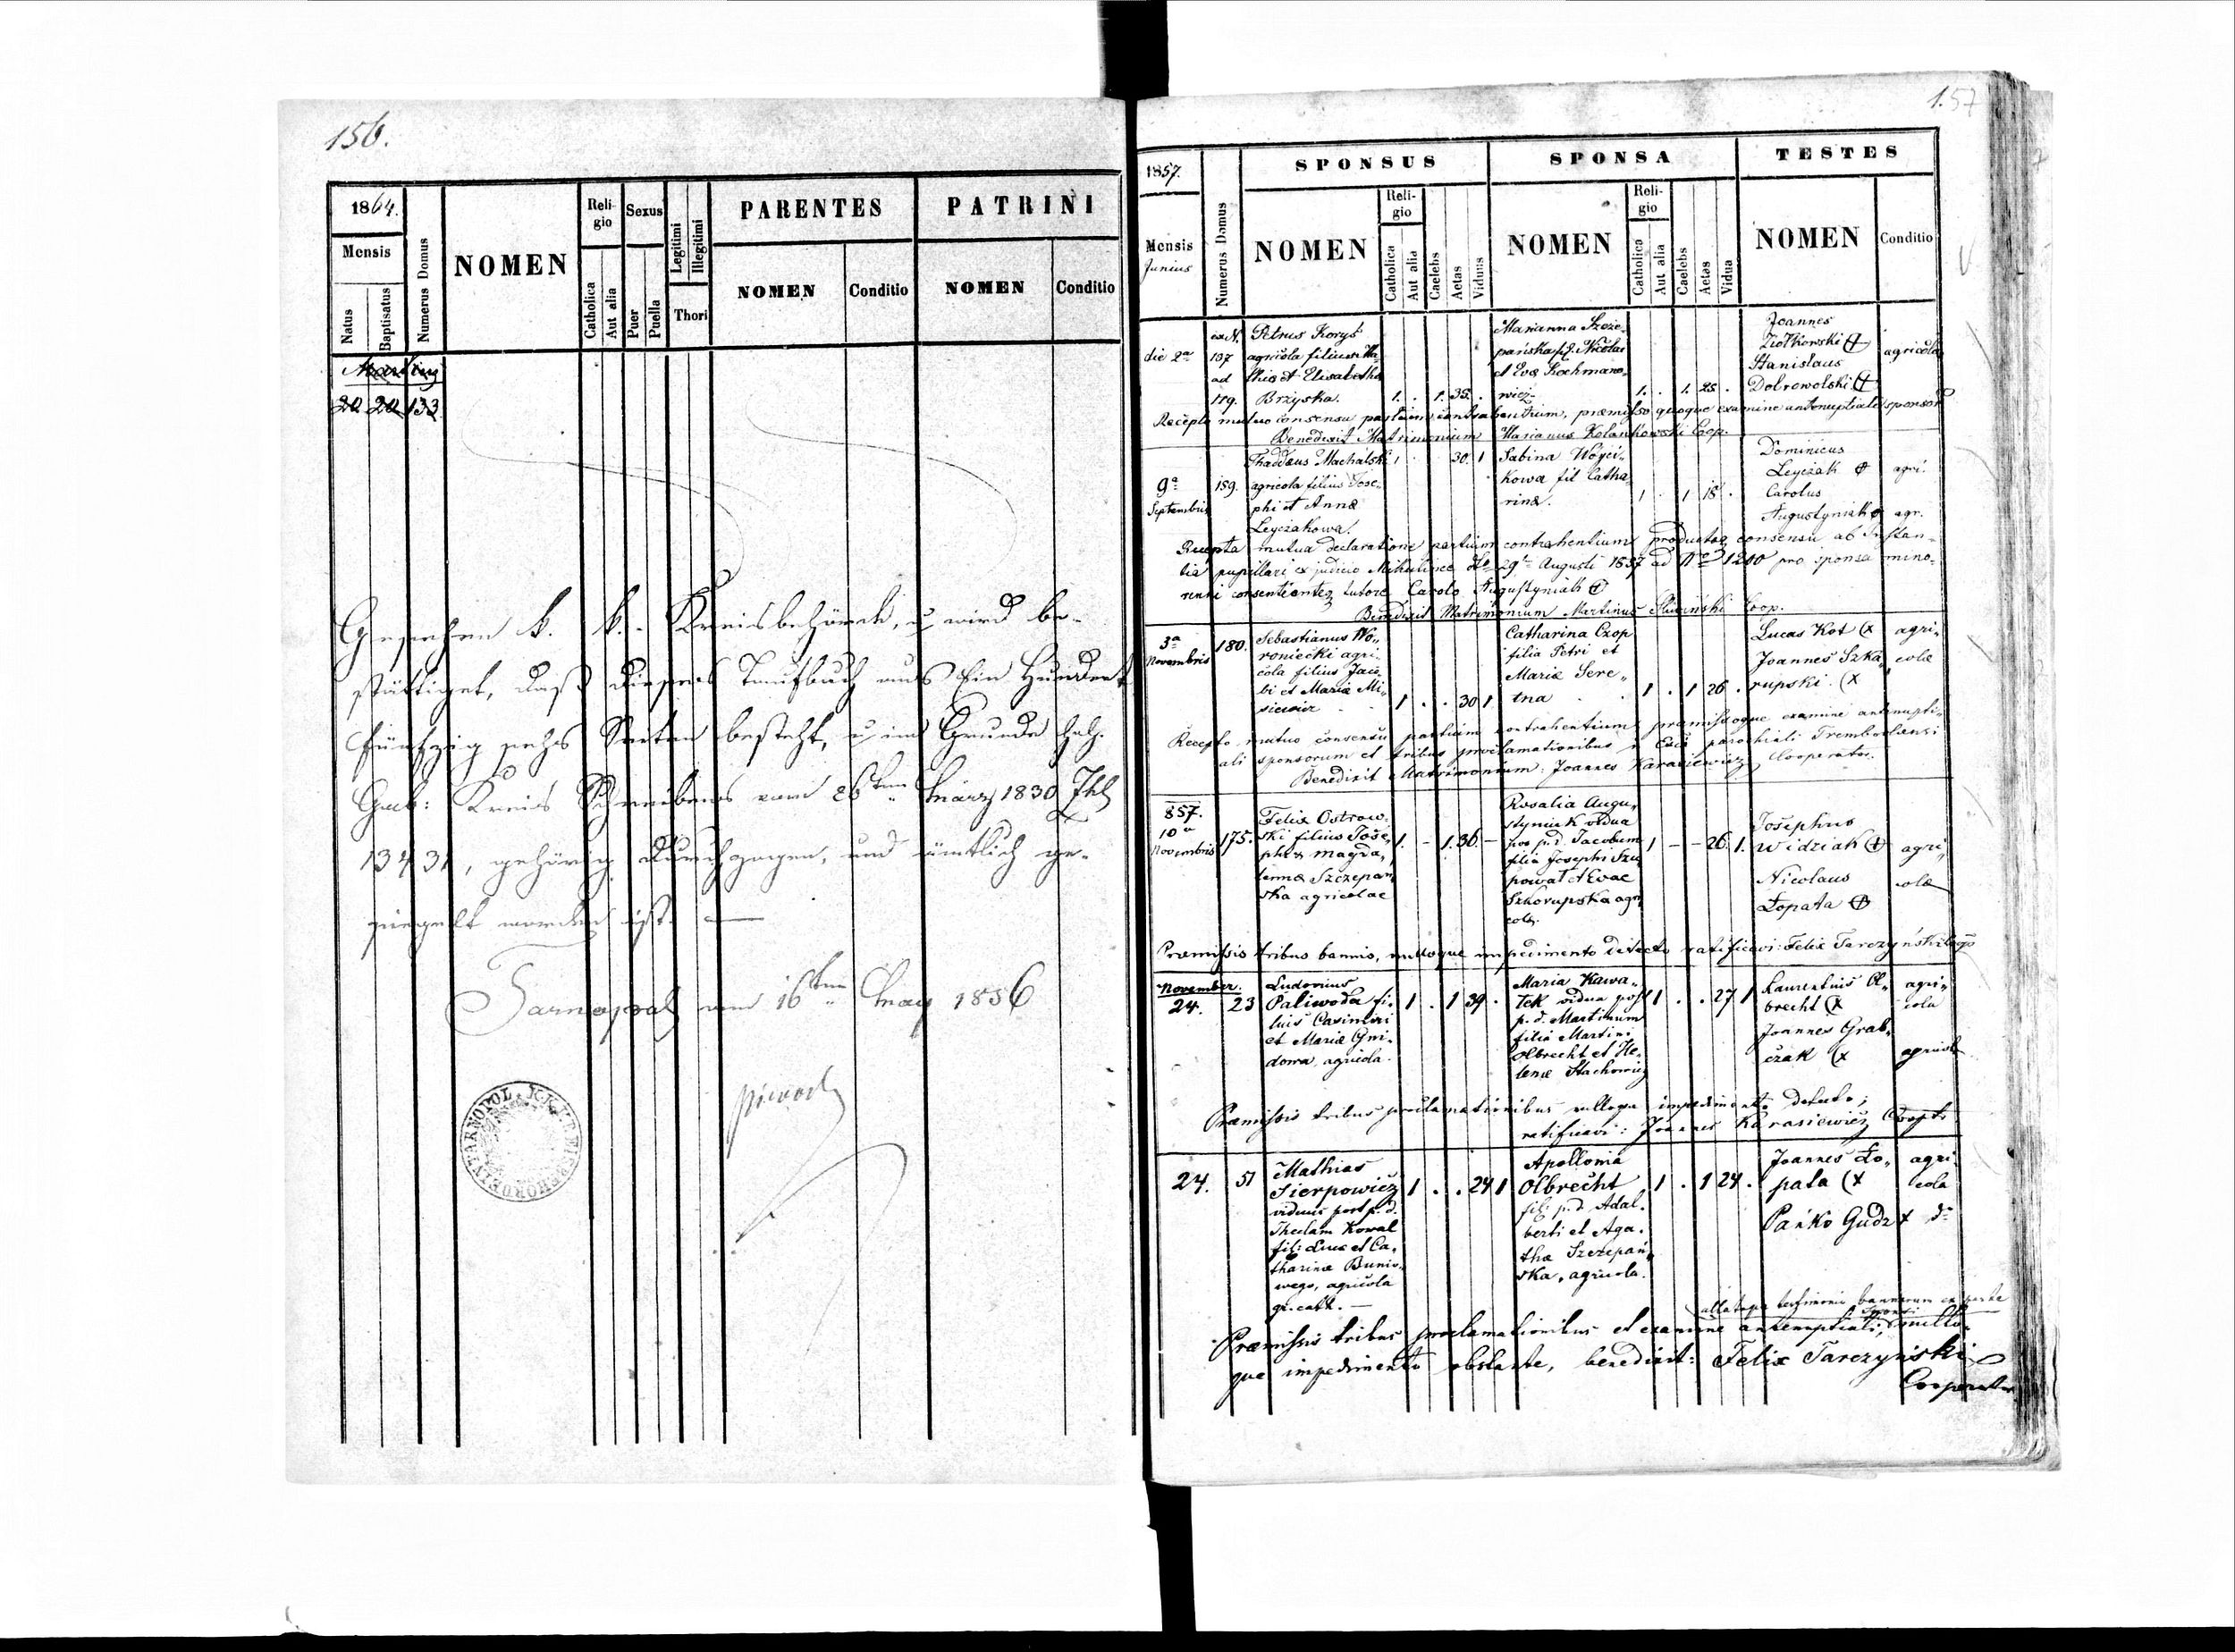 156.
1864.
Mensis
Natus
Baptisatus
Numerus Domus
NOMEN
Religio
Catholica
Aut alia
Sexus
Puer
Puella
Legitimi
Illegitimi
Thori
PARENTES
NOMEN
Conditio
PATRINI
NOMEN
Conditio
20 20 133
Gesehen k. k. Kreisbehörde, u wird be-
stättiget, daß dieses Taufbuch aus Ein Hundert
fünfzig sechs Seiten besteht, u im Grunde hoh.
Gub: Kreis Schreibens vom 26ten März 1830 Zhl
13431, gehörig durchzogen, und ämtlich ge-
siegelt worden ist. —
Tarnopol am 16ten May 1856
157
1857.
Mensis
Junius
Numerus Domus
SPONSUS
NOMEN
Religio
Catholica
Aut alia
Caelebs
Aetas
Viduus
SPONSA
NOMEN
Religio
Catholica
Aut alia
Caelebs
Aetas
Vidua
TESTES
NOMEN
Conditio
die 2a
ex N.
137
ad
179.
Petrus Koryś
agricola filius Ma-
thiæ et Elisabetha
Brzyska.
1. . 1. 35. .
Marianna Szcze-
pańska fil. Nicolai
et Eva Kochmano-
wicz.
1. . 1. 25. .
Joannes
Ziołkowski
Stanislaus
Dobrowolski
agricolæ
Recepto mutuo consensu partium contrahentium, præmisso quoque examine antenuptiali sponsor
Benedixit Matrimonium Marianus Kolankowski Coop.
9a
Septembris
159.
Thaddæus Machalski
agricola filius Jose-
phi et Annæ
Leyczakowa.
1 30. 1
Sabina Woyci-
kowa fil Catha
rinæ.
1 . 1 18 .
Dominicus
Leyczak
Carolus
Augustyniak
agri.
agr.
Recepta mutua declaratione partium contrahentium producto consensu ab Instan-
tia pupillari ex judicio Mikulince dto 29 Augusti 1857 ad Nro 1210 pro sponsa mino-
renni consentiente tutore Carolo Augustyniak
Benedixit Matrimonium Martinus Śliwiński Coop.
3a
Novembris
180.
Sebastianus Wo-
roniecki agri-
cola filius Jaco-
bi et Mariæ Mi-
siewicz
1 . . 30 1
Catharina Czop
filia Petri et
Mariæ Sere-
tna
1 . 1 26 .
Lucas Kot
Joannes Szka-
rupski.
agri-
colæ
Recepto mutuo consensu partium contrahentium præmissoque examine antenupti-
ali sponsorum et tribus proclamationibus in Ecc parochiali Tremboвlensi
Benedixit Matrimonium: Joannes Karasiewicz, Cooperator.
857.
10a
Novembris
175.
Felix Ostrow-
ski filius Jose-
phi & Magda-
lennæ Szczepan-
ska agricolae
1. - 1. 36. -
Rosalia Augu-
styniuk vidua
pos p.d. Jacobum
filia Josephi Szu
powat et Evae
Szkorupska agri
colæ.
1 - - 26. 1.
Josephus
Widziak
Nicolaus
Łopata
agri-
colæ
Præmissis tribus bannis, nulloque impedimento detecto ratificavi: Felix Tarczyński Coop
November.
24.
23
Ludovicus
Paliwoda fi-
lius Casimiri
et Mariæ Gni-
dowa, agricola.
1 . 1 39 .
Maria Kawa-
łek vidua post
p. d. Martinum
filia Martini
Olbrecht et He-
lenæ Stachowicz
1 . . 27 1
Laurentius Ol-
brecht
Joannes Grab-
czak
agri-
cola
agricola
Præmissis tribus proclamationibus nulloque impedimento detecto;
ratificavi: Joannes Karasiewicz Coopr
24.
51
Mathias
Sierpowicz
viduus post p.d.
Theclam Kowal
fil: Lucæ et Ca-
tharinæ Bunio-
wego, agricola
gr. cath. —
1 . . 24 1
Apollonia
Olbrecht
fil: p.d. Adal-
berti et Aga-
thæ Szczepań-
ska, agricola.
1 . 1 24 .
Joannes Ło-
pata
Pańko Gudz
agri
cola
dto
allatoque testimonio bannorum ex parte
sponsi
Præmissis tribus proclamationibus et examine antenuptiali, nullo-
que impedimento obstante, benedixit: Felix Tarczyński
Cooperator